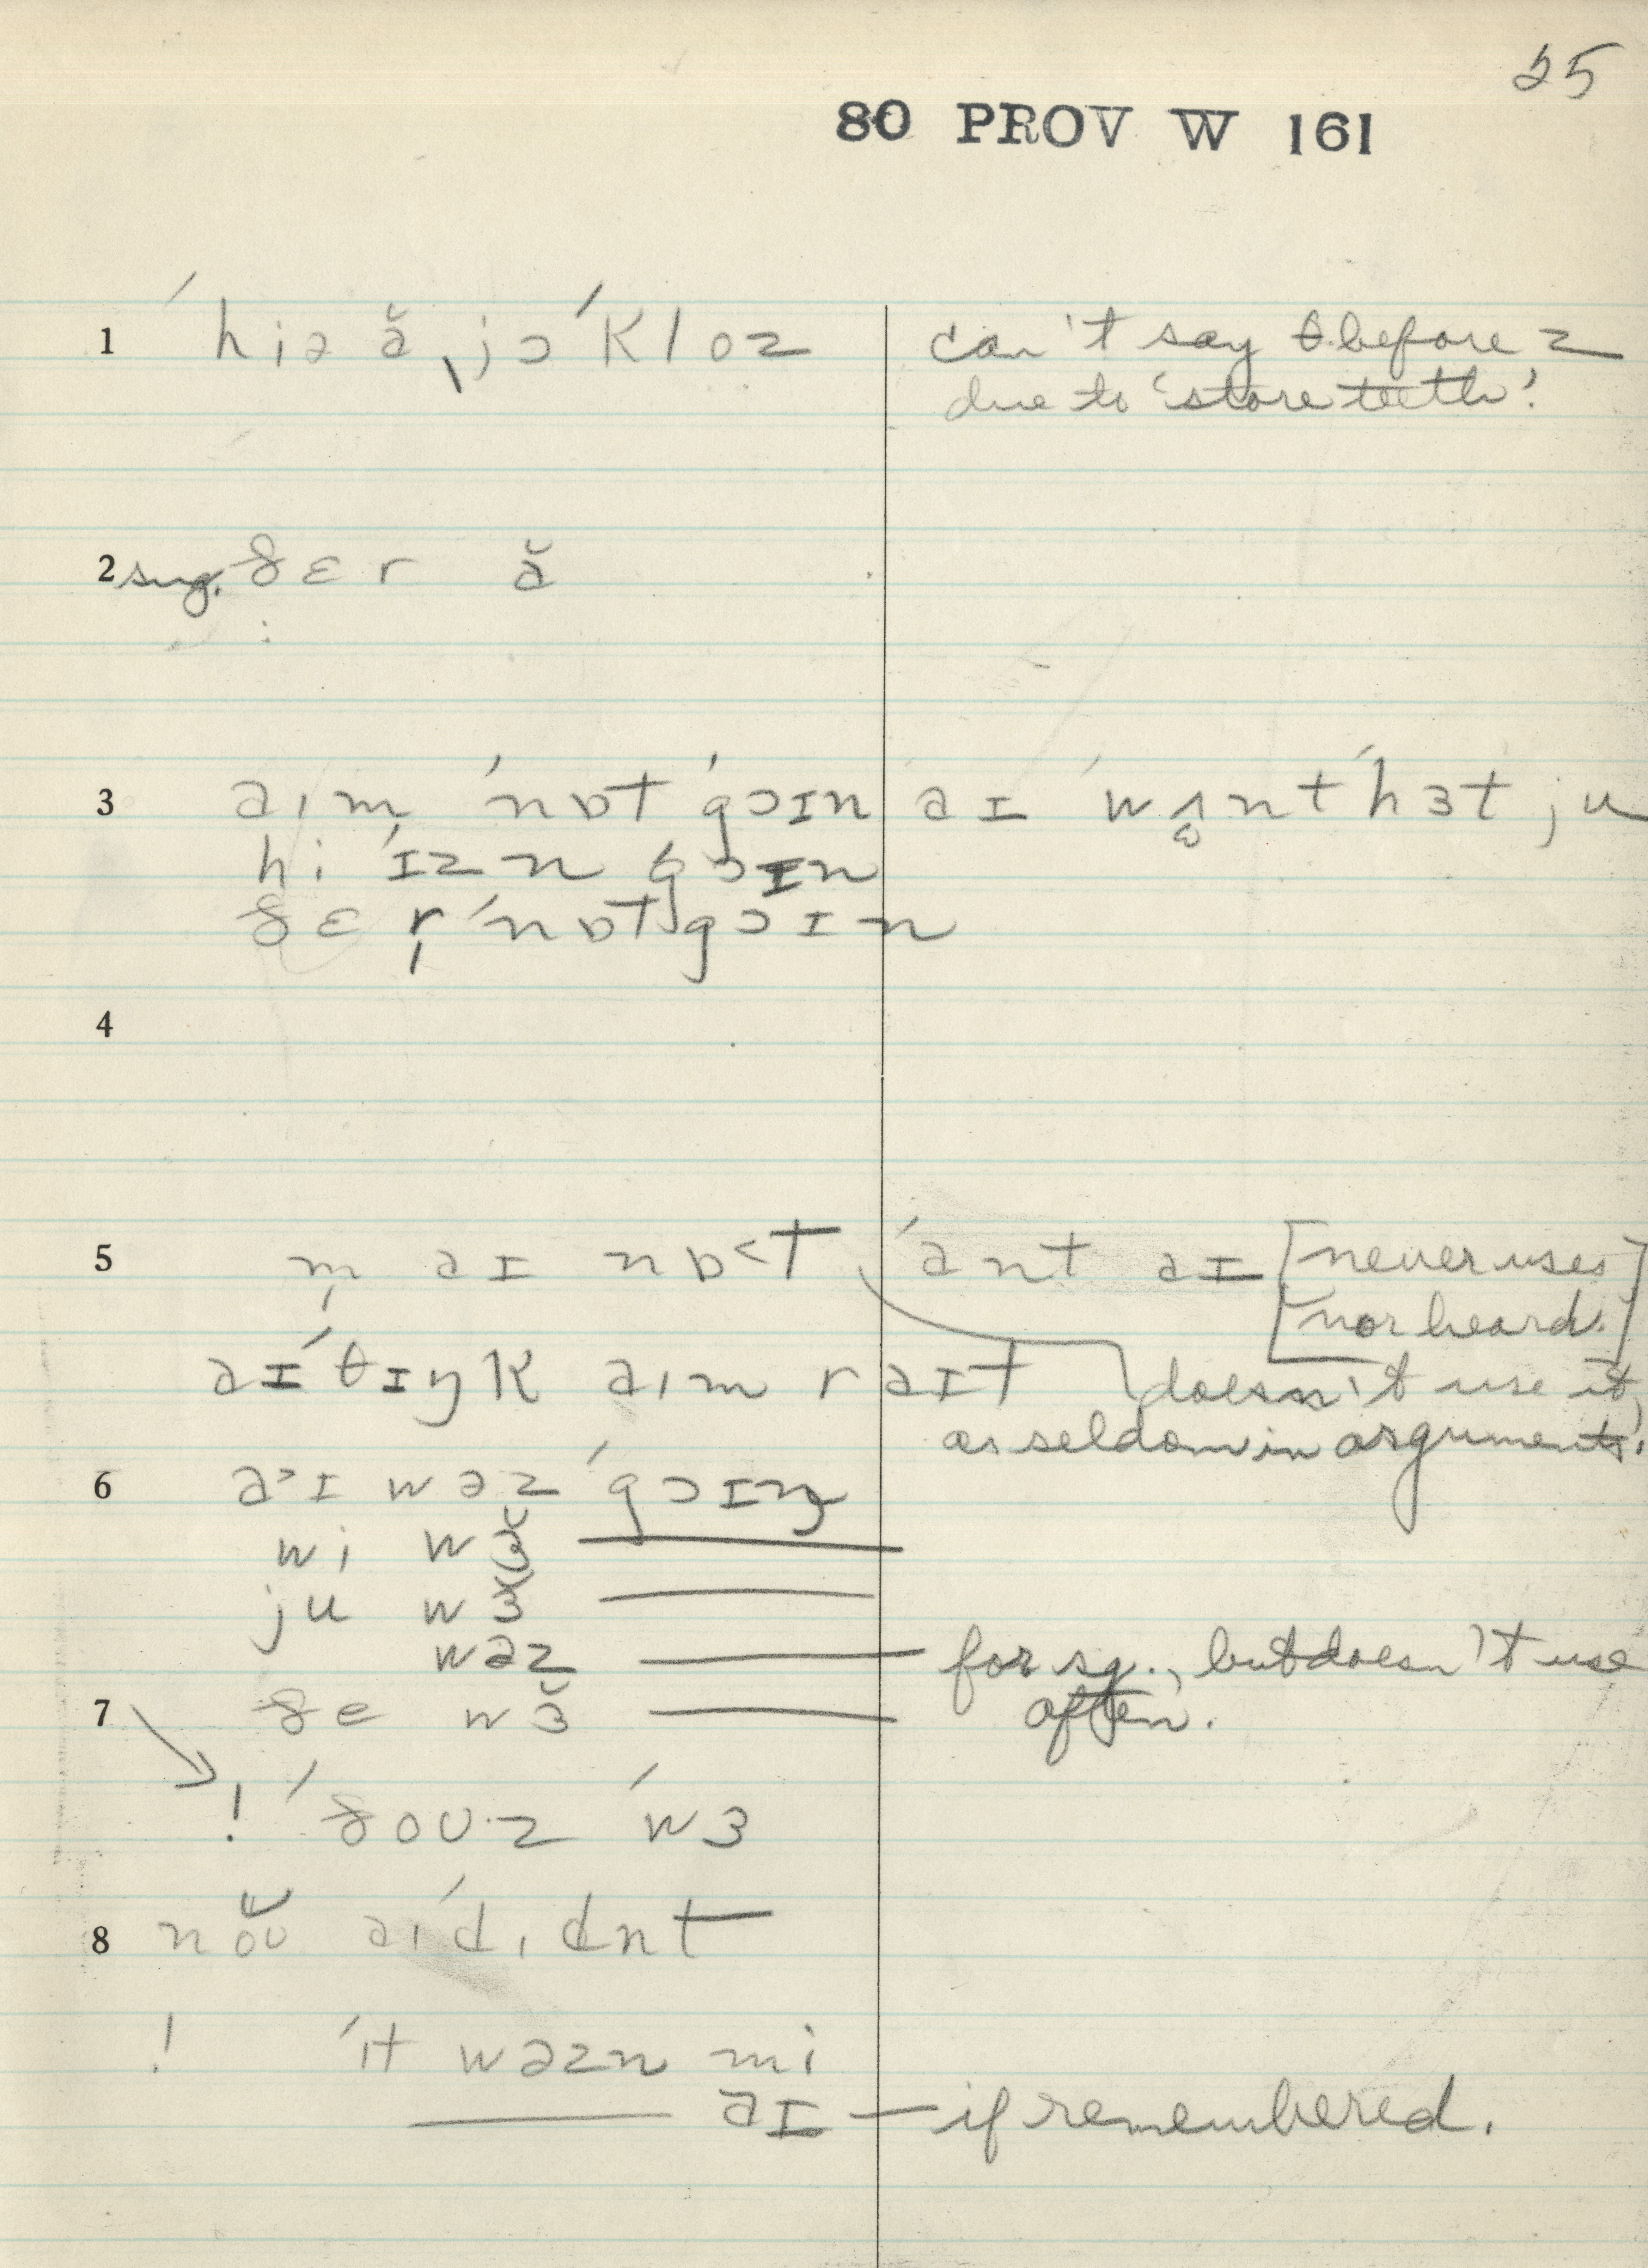 25
80 PROV W 161
1 ˈhiə ɚ jɔ ˈkloz can't say θ before z
due to 'store teeth'.
2 sug. ðɛr ɚ
3 aɪm ˈnɒt ˈgɔɪn aɪ ˈwʌnt ˈhɜt ju
hi ˈɪzn ˈgɔɪn
ðɛr ˈnɒt gɔɪn
4
5 m̩ aɪ nɒ<t ˈant aɪ [never uses]
[nor heard.]
aɪ ˈθɪŋk aɪm raɪt doesn't use it,
as seldom in arguments.
6 a>ɪ wəz ˈgɔɪŋ
wi wɜ̆ ———
ju wɜ̆ ———
wəz ——— for sg., but doesn't use
7 ðe wɜ̆ ——— often.
! ˈðoʊ·z ˈwɜ
8 noʊ̆ aɪ ˈdɪdnt
! ˈɪt wəzn mi
——— aɪ — if remembered.